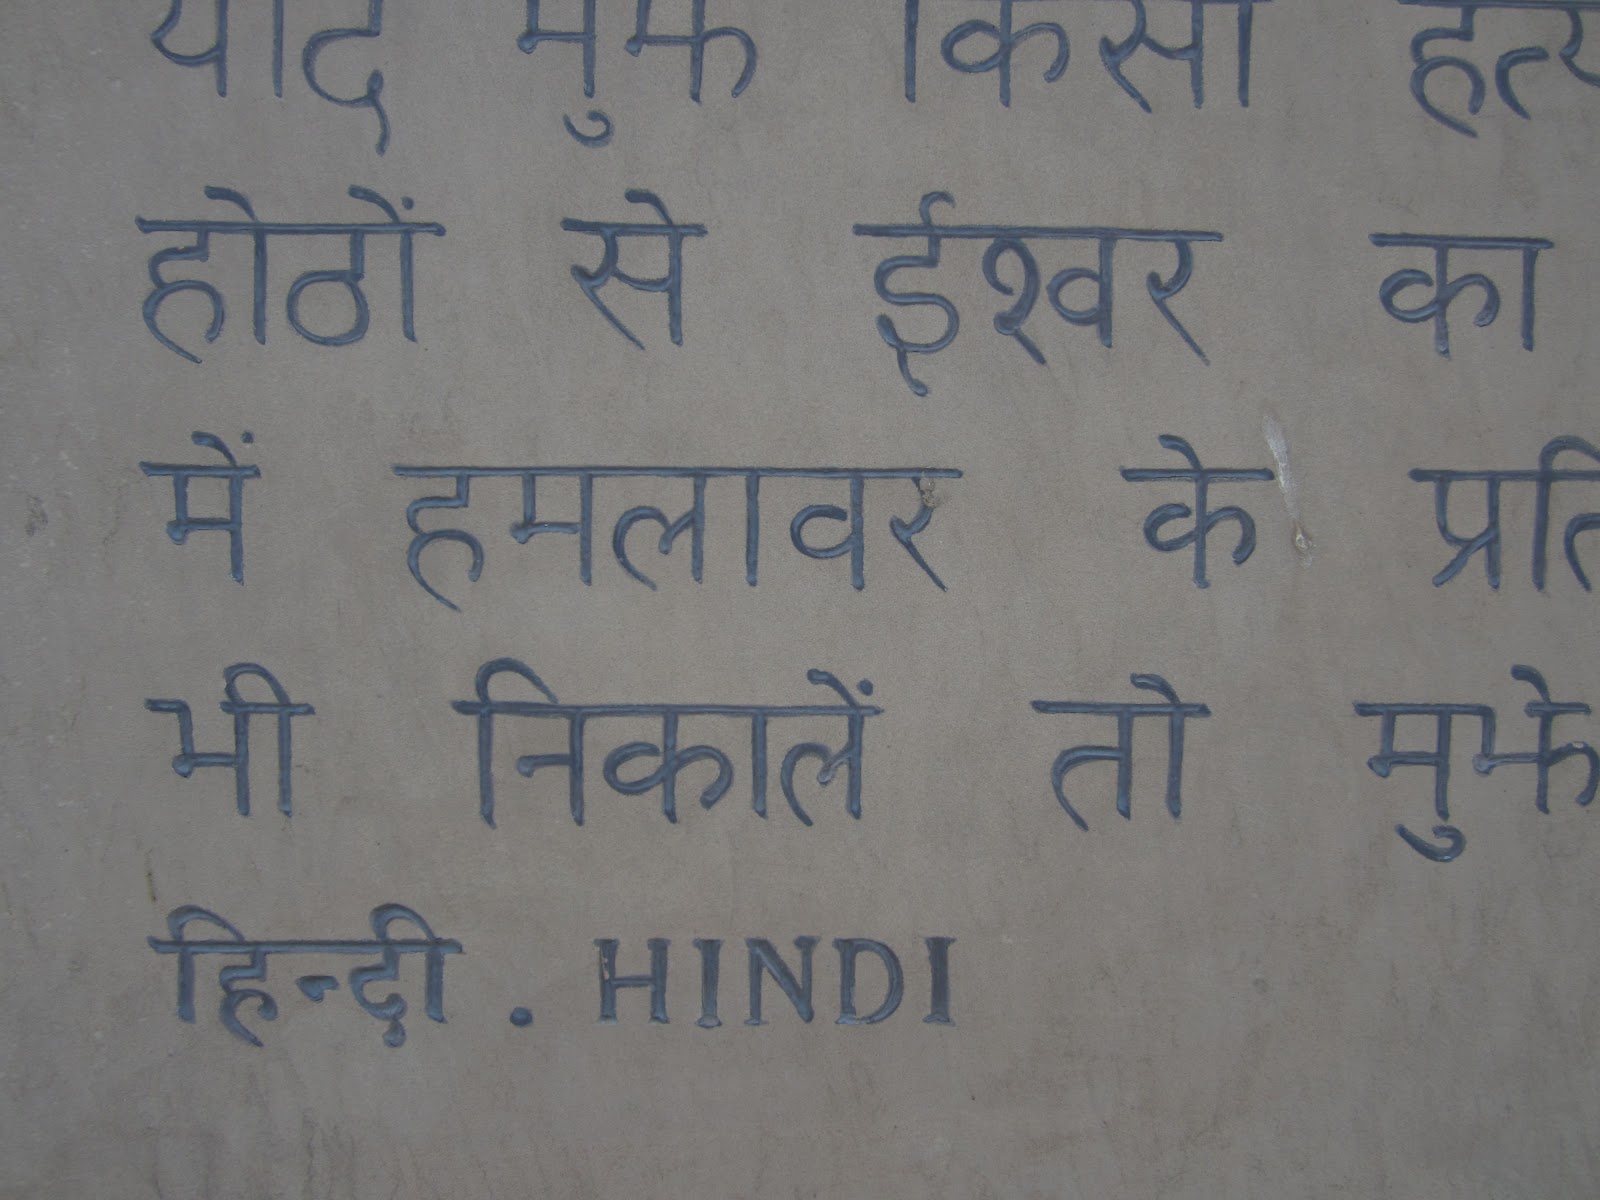 यदि मुझे किसी
होठों से ईश्वर का
में हमलावर के प्रति
भी निकालें तो मुझे
हिन्दी . HINDI